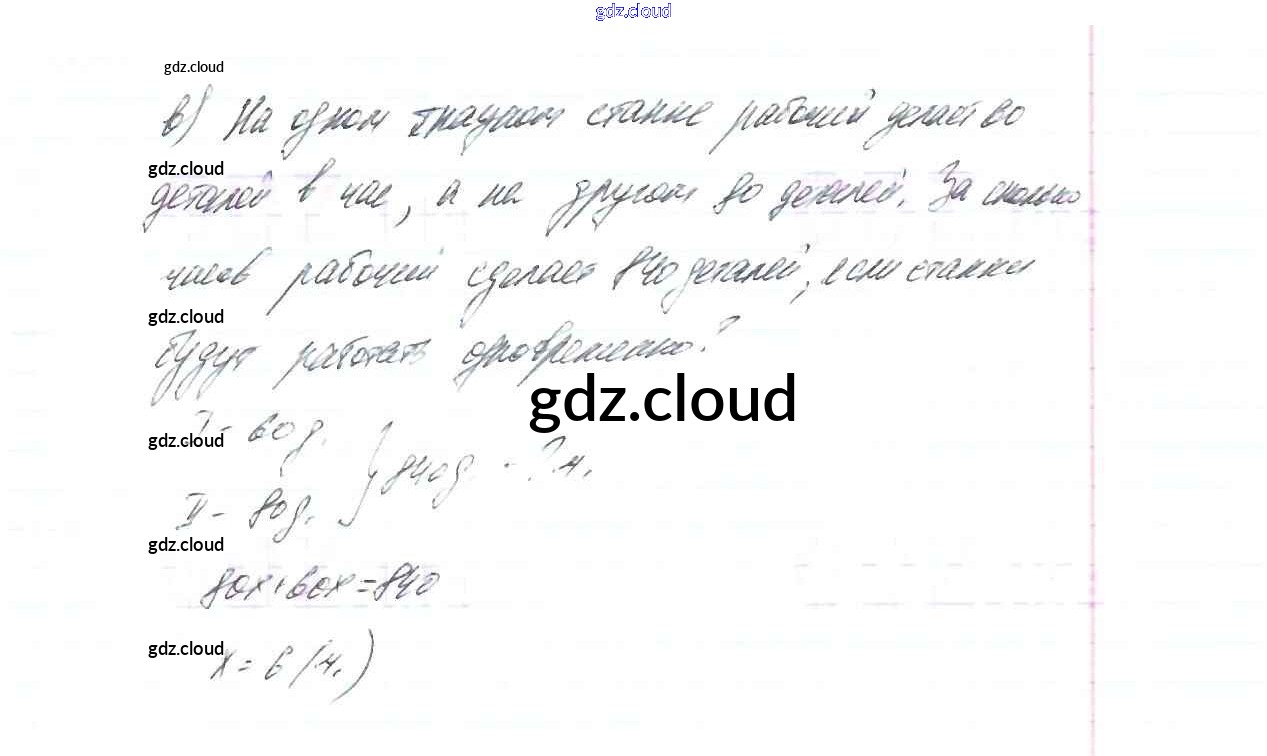 gdz.cloud
gdz.cloud
в) На одном ткацком станке рабочий делает 60
gdz.cloud
деталей в час, а на другом 80 деталей. За сколько
часов рабочий сделает 840 деталей, если станки
gdz.cloud
будут работать одновременно?
gdz.cloud
I - 60 д.
gdz.cloud
840д. - ? ч.
II - 80д.
gdz.cloud
80х+60х=840
gdz.cloud
х = 6 (ч.)